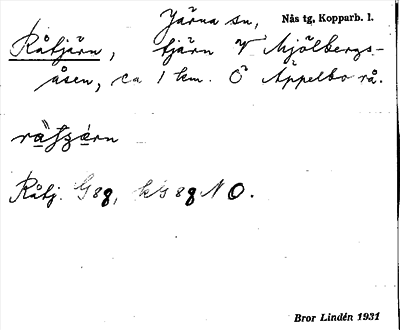 Järna sn, Nås tg, Kopparb. l.
Råtjärn, tjärn V Mjölbergs-
åsen, ca 1 km. Ö Äppelbo rå.
Råtj. G8g, k/s 8g NO.
Bror Lindén 1931